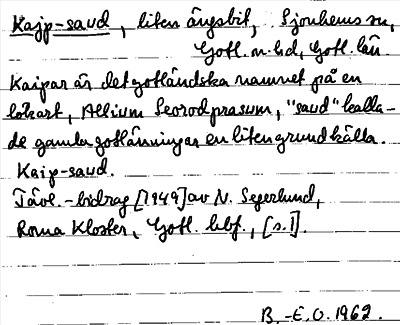 Kajp-saud, liten ängsbit, Sjonhems sn,
Gotl. n. hd, Gotl. län
Kaipar är det gotländska namnet på en
lökart, Allium Scorodprasum, "saud" kalla-
de gamla gotlänningar en liten grund källa.
Kaip-saud.
Tävl.-bidrag [1949] av N. Segerlund,
Roma Kloster, Gotl. hbf., [s.1].
B.-E.O. 1962.